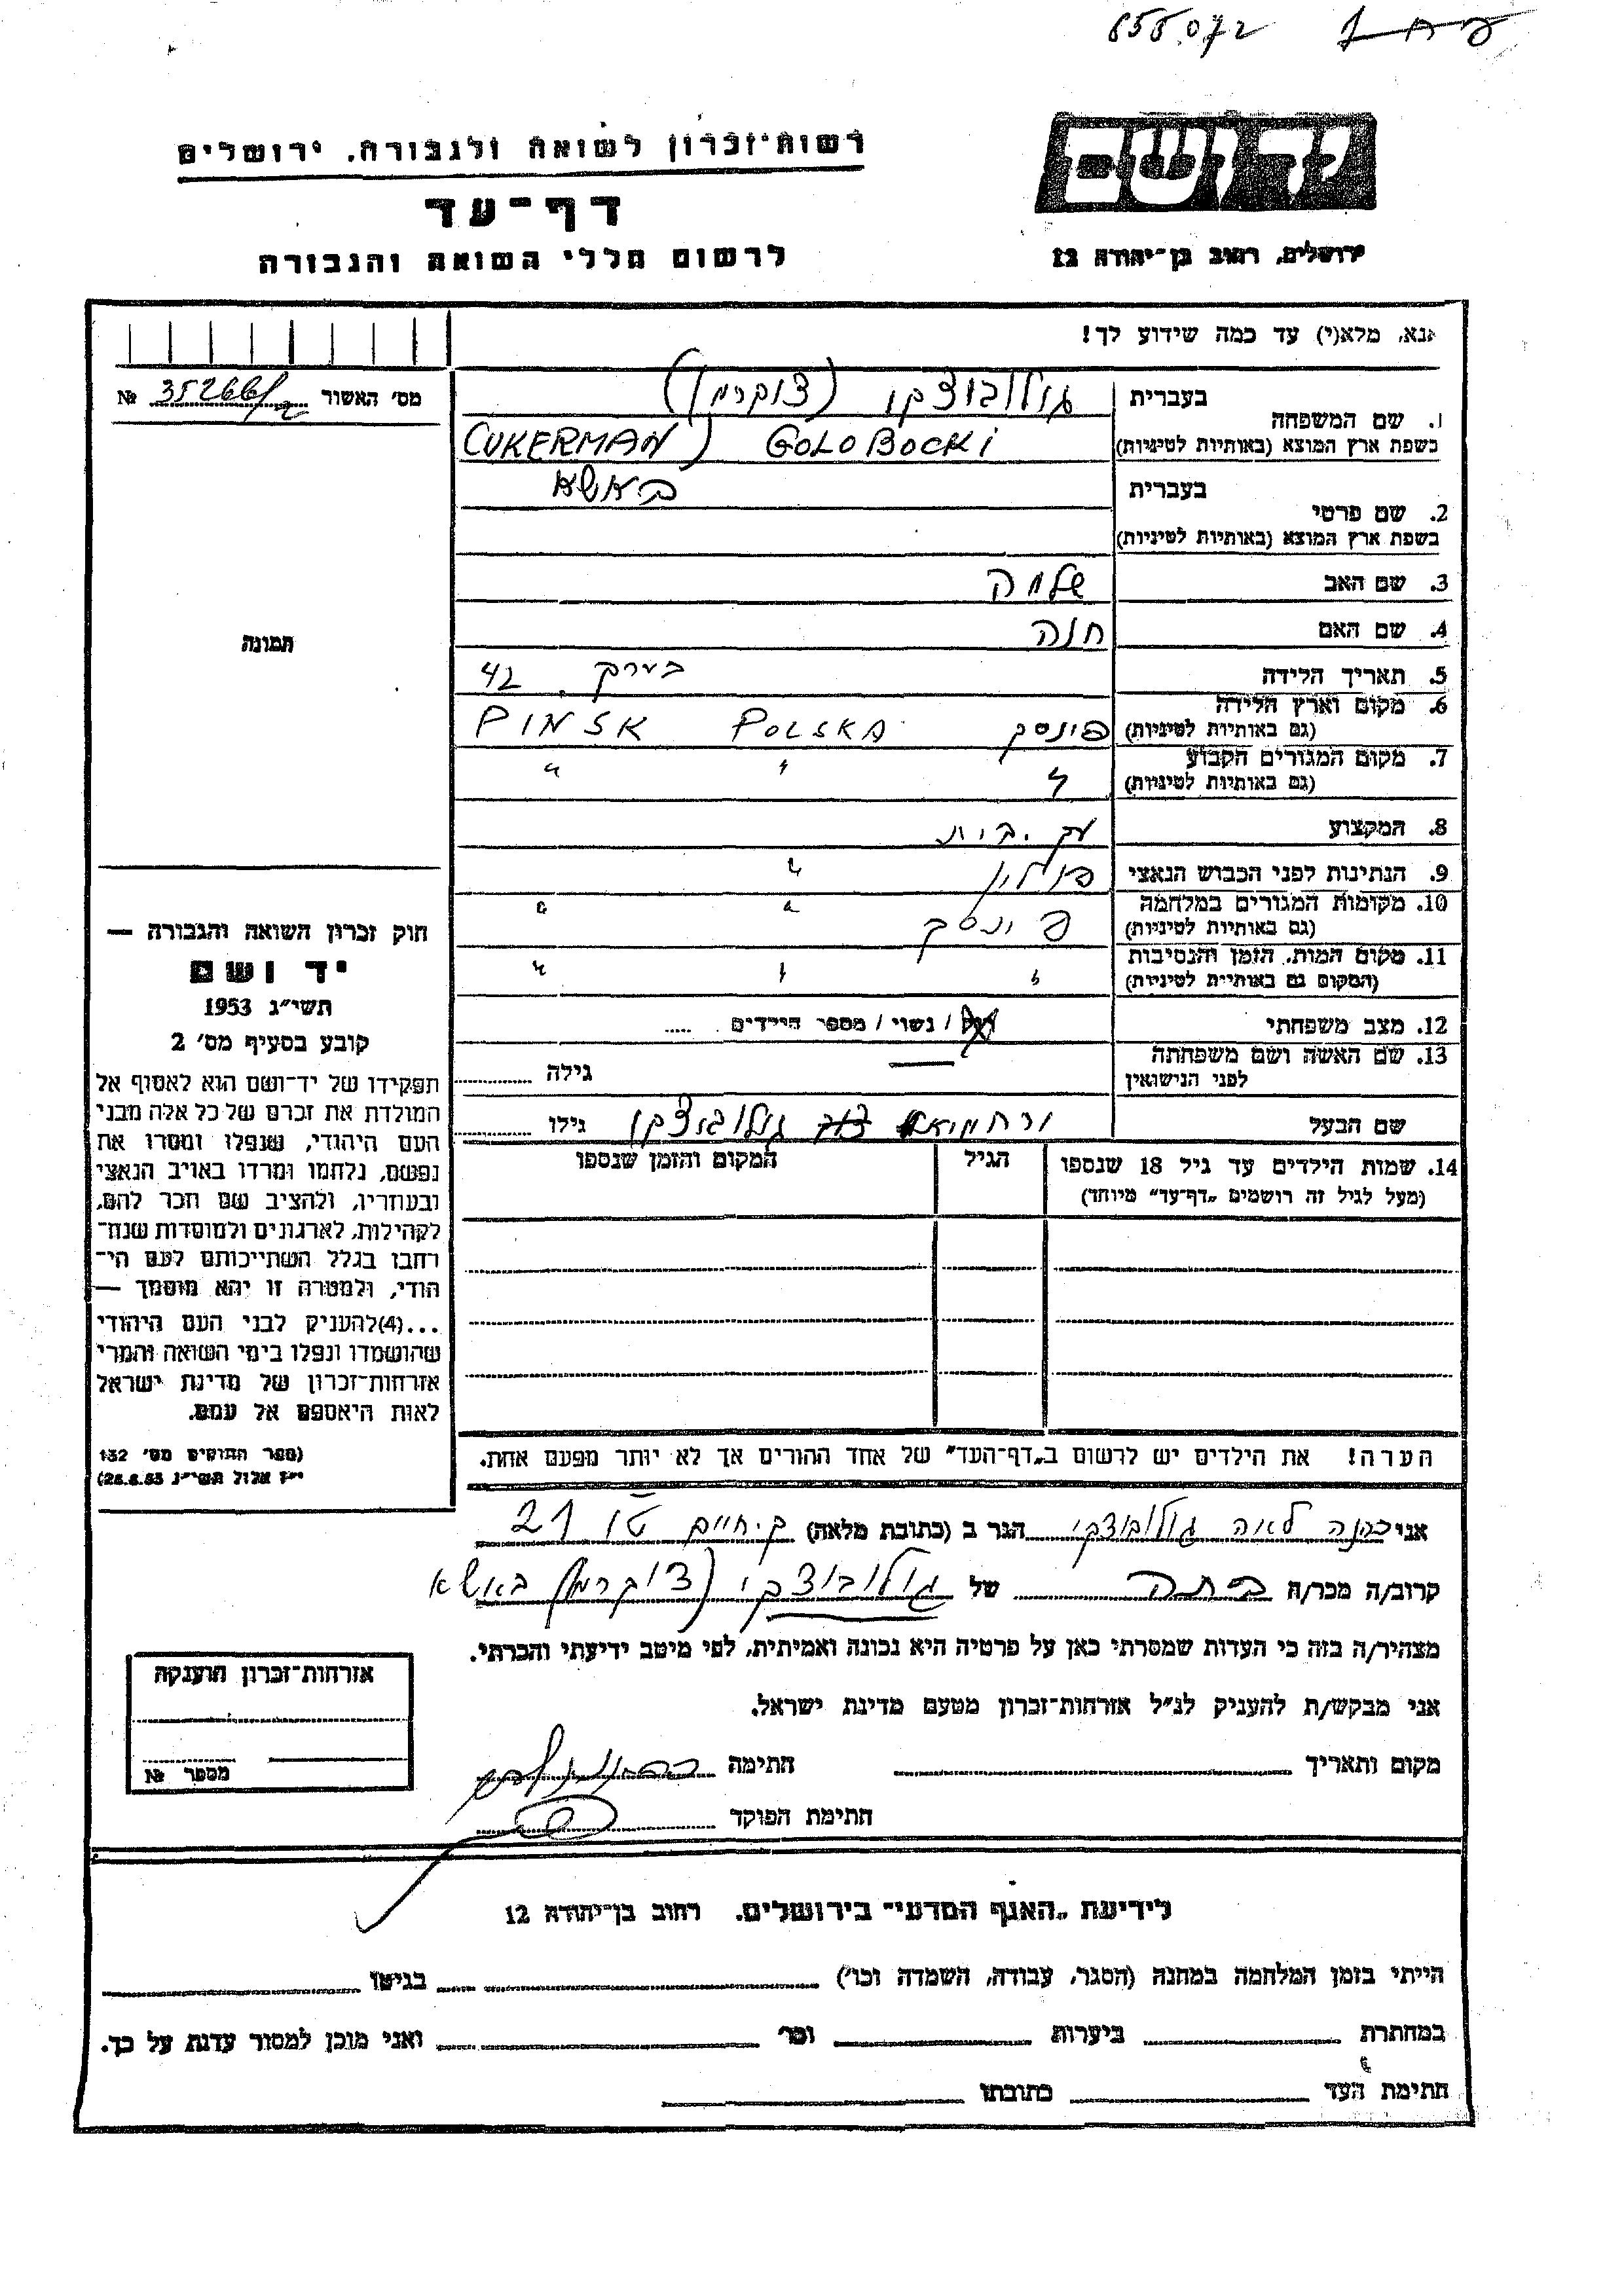 855072
יד ושם
ירושלים, רחוב בן־יהודה 12
רשות־זכרון לשואה ולגבורה, ירושלים
דף־עד
לרשום חללי השואה והגבורה
אנא, מלא(י) עד כמה שידוע לך!
מס׳ האשור 35266/2 №
1. שם המשפחה
בעברית גולובוצקי (צוקרמן)
בשפת ארץ המוצא (באותיות לטיניות) GOLOBOCKI (CUKERMAN
2. שם פרטי
בעברית באשא
בשפת ארץ המוצא (באותיות לטיניות)
3. שם האב שלמה
4. שם האם חנה
5. תאריך הלידה בערך 42
6. מקום וארץ הלידה
(גם באותיות לטיניות) פינסק POLSKA PINSK
7. מקום המגורים הקבוע
(גם באותיות לטיניות) " " "
8. המקצוע עק. בית
9. הנתינות לפני הכבוש הנאצי פולין "
10. מקומות המגורים במלחמה
(גם באותיות לטיניות) פינסק " "
11. מקום המות, הזמן והנסיבות
(המקום גם באותיות לטיניות) " " "
12. מצב משפחתי רווק / נשוי / מספר הילדים .....
13. שם האשה ושם משפחתה
לפני הנישואין — גילה
שם הבעל גולובוצקי גילו
14. שמות הילדים עד גיל 18 שנספו
(מעל לגיל זה רושמים „דף־עד" מיוחד)
הגיל
המקום והזמן שנספו
הערה! את הילדים יש לרשום ב„דף־העד" של אחד ההורים אך לא יותר מפעם אחת.
תמונה
חוק זכרון השואה והגבורה —
יד ושם
תשי״ג 1953
קובע בסעיף מס׳ 2
תפקידו של יד־ושם הוא לאסוף אל
המולדת את זכרם של כל אלה מבני
העם היהודי, שנפלו ומסרו את
נפשם, נלחמו ומרדו באויב הנאצי
ובעוזריו, ולהציב שם וזכר להם,
לקהילות, לארגונים ולמוסדות שנח־
רבו בגלל השתייכותם לעם הי־
הודי, ולמטרה זו יהא מוסמך —
...(4)להעניק לבני העם היהודי
שהושמדו ונפלו בימי השואה והמרי
אזרחות־זכרון של מדינת ישראל
לאות היאספם אל עמם.
(ספר החוקים מס׳ 132
י״ז אלול תשי״ג 28.8.53)
אני כהנה לאה גולובוצקי הגר ב (כתובת מלאה) ק. חיים 21
קרוב/ה מכר/ה בתה של גולובוצקי (צוקרמן) באשא
מצהיר/ה בזה כי העדות שמסרתי כאן על פרטיה היא נכונה ואמיתית, לפי מיטב ידיעתי והכרתי.
אני מבקש/ת להעניק לנ״ל אזרחות־זכרון מטעם מדינת ישראל.
מקום ותאריך חתימה
חתימת הפוקד
אזרחות־זכרון הוענקה
מספר №
לידיעת „האגף המדעי" בירושלים, רחוב בן־יהודה 12
הייתי בזמן המלחמה במחנה (הסגר, עבודה, השמדה וכו׳) בגיטו
במחתרת ביערות וכו׳ ואני מוכן למסור עדות על כך.
חתימת העד כתובתו